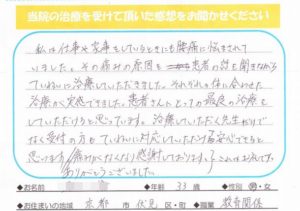 当院の治療を受けて頂いた感想をお聞かせください
私は仕事や家事をしているときにも腰痛に悩まされて
いました。その痛みの原因を患者の話を聞きながら
ていねいに治療していただきました。それぞれの体に合わせた
治療が大変できました。患者さんにとっての最良の治療を
していただけると思っています。治療していただく先生だけで
なく受付の方もていねいに対応していただけ安心ができると
思います。痛みがなくなり感謝しております。これからも
ありがとうございました。
◆お名前 ◆年齢 33 歳 ◆性別 男・女
◆お住まいの地域 京都 市 伏見 区・町 ◆職業 教育関係